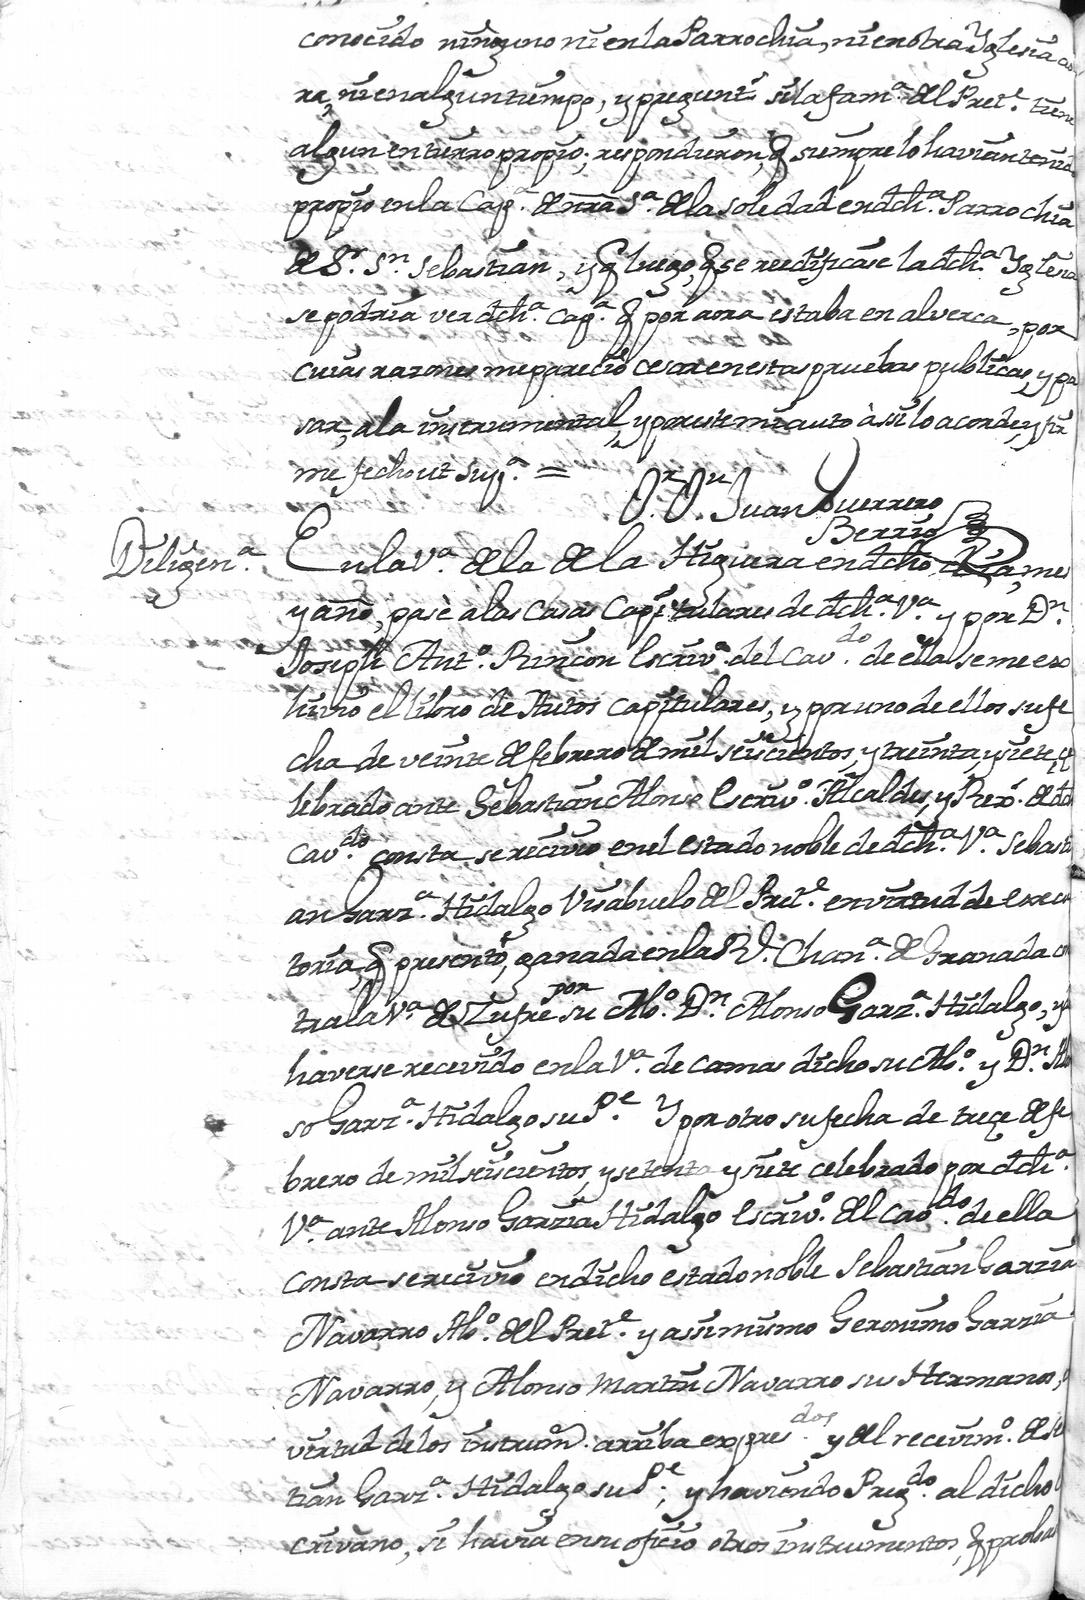 conocido ninguno ni en la Parrochia, ni en otra Yglesia ao
ra, ni en algun tiempo, y pregunte si la fam.ª del Pret.e tiene
algun entierro propio; respondieron, q siempre lo havian tenido
propio en la Cap.ª de nra S.ª de la Soledad en dch.ª Parrochia
de S.r S.n Sebastian, y q luego, q se reedificase la dch.ª Yglesia
se podria ver dch.ª Cap.ª q por aora estaba en alverca, por
cuias razones me parecio cesar en estas pruebas publicas, y pa
sar, a la instrumental, y por este mi auto assi lo acorde, y fir
me fecho ut sup.ª =
D.r D.n Juan Guerrero
Berrio
Diligen.ª
En la V.ª de la de la Higuera en dicho dia, mes
y año, pase a las Casas Capitulares de dch.ª V.ª y por D.n
Joseph Ant.º Rincon Escriv.º del Cav.do de ella se me exo
hivio el libro de Autos Capitulares, y por uno de ellos su fe
cha de veinte de febrero de mil seiscientos, y treinta, y siete ce
lebrado ante Sebastian Alonso Escriv.º Alcaldes, y Rex.s de dch
Cav.do consta se recivio en el estado noble de dch.ª V.ª Sebasti
an Garz.ª Hidalgo Visabuelo del Pret.e en virtud de execu
toria, q presentó, ganada en la R.l Chan.ª de Granada con
tra la V.ª de Zufre por su Ab.º D.n Alonso Garz.ª Hidalgo, y
haverse recevido en la V.ª de Camas dicho su Ab.º y D.n Alo
so Garz.ª Hidalgo su P.e Y por otro su fecha de trece de fe
brero de mil seiscientos, y setenta y siete celebrado por dch.ª
V.ª ante Alonso Garzia Hidalgo Escriv.º del Cav.do de ella
consta se recivio en dicho estado noble Sebastian Garzia
Navarro Ab.º del Pret.e y assimismo Geronimo Garzia
Navarro, y Alonso Martin Navarro sus Hermanos,
virtud de los instrum.s arriba expres.dos y del recevim.º de Se
tian Garz.ª Hidalgo su P.e; y haviendo Preg.do al dicho
crivano, si havia en su oficio otros instrumentos, q proba